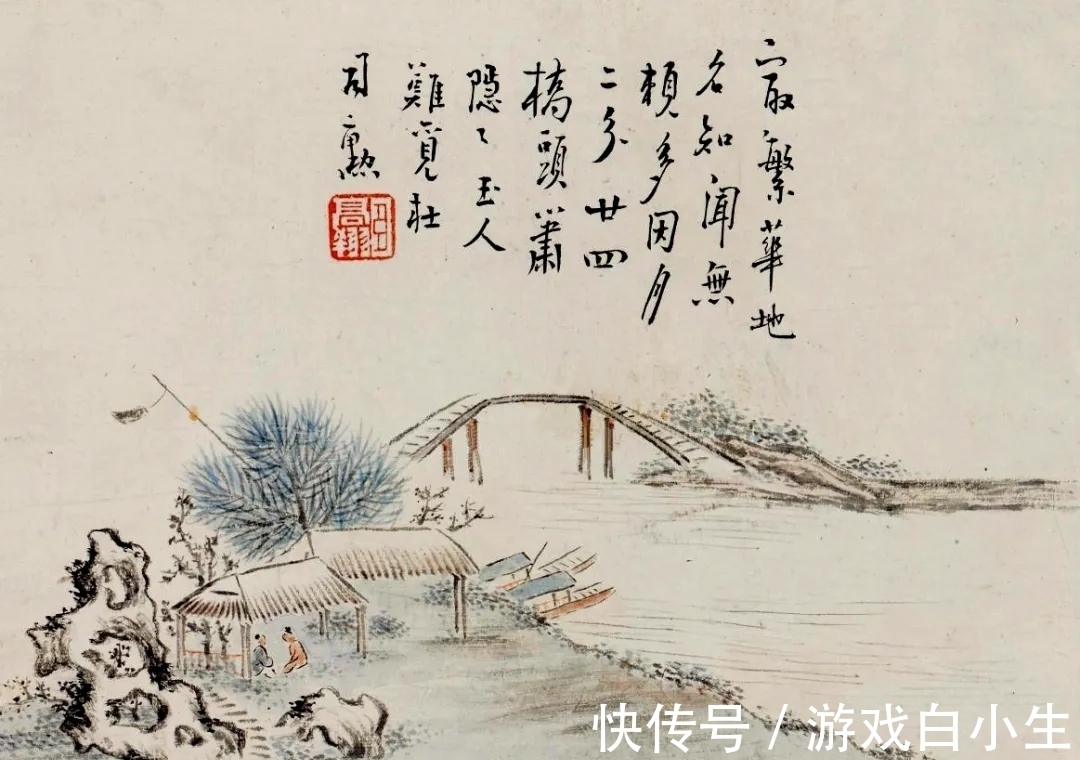 冣繁華地
名知聞無
頼多因月
二分廿四
橋頭簫
隱〻玉人
難覓杜
司勲
快传号 / 游戏白小生